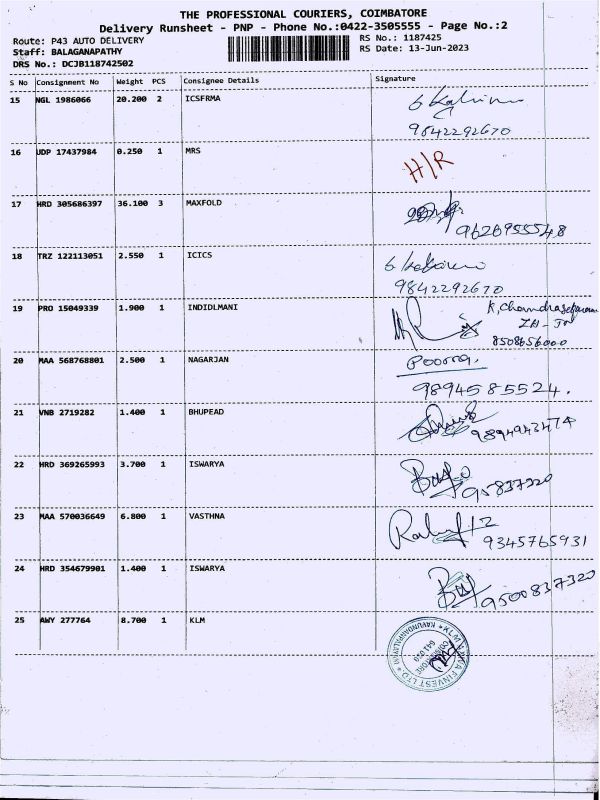 THE PROFESSIONAL COURIERS, COIMBATORE
Delivery Runsheet - PNP - Phone No.:0422-3505555 - Page No.:2
Route: P43 AUTO DELIVERY RS No.: 1187425
Staff: BALAGANAPATHY RS Date: 13-Jun-2023
DRS No.: DCJB118742502
S No Consignment No Weight PCS Consignee Details Signature
15 NGL 1986066 20.200 2 ICSFRMA
9842292670
16 UDP 17437984 0.250 1 MRS H/R
17 HRD 305686397 36.100 3 MAXFOLD
9626955548
18 TRZ 122113051 2.550 1 ICICS
9842292670
19 PRO 15049339 1.900 1 INDIDLMANI
8508656000
20 MAA 568768801 2.500 1 NAGARJAN Poorna.
9894585524.
21 VNB 2719282 1.400 1 BHUPEAD
9894943474
22 HRD 369265993 3.700 1 ISWARYA
23 MAA 570036649 6.800 1 VASTHNA
9345765931
24 HRD 354679901 1.400 1 ISWARYA
9500837320
25 AWY 277764 8.700 1 KLM